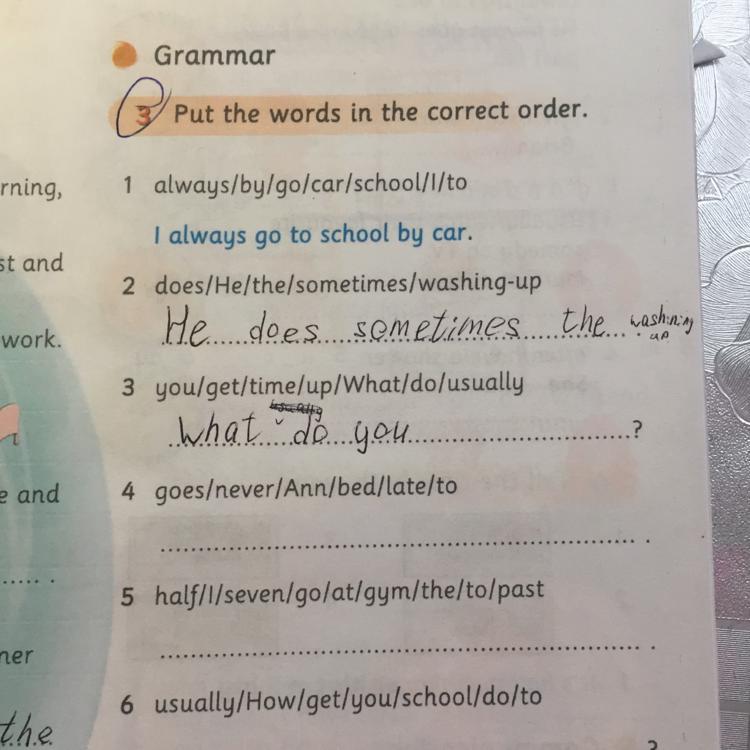 Grammar
3 Put the words in the correct order.
rning,
1 always/by/go/car/school/I/to
I always go to school by car.
st and
2 does/He/the/sometimes/washing-up
He does sometimes the washining
up
work.
3 you/get/time/up/What/do/usually
usually
what do you ?
e and
4 goes/never/Ann/bed/late/to
5 half/I/seven/go/at/gym/the/to/past
ner
6 usually/How/get/you/school/do/to
the
?